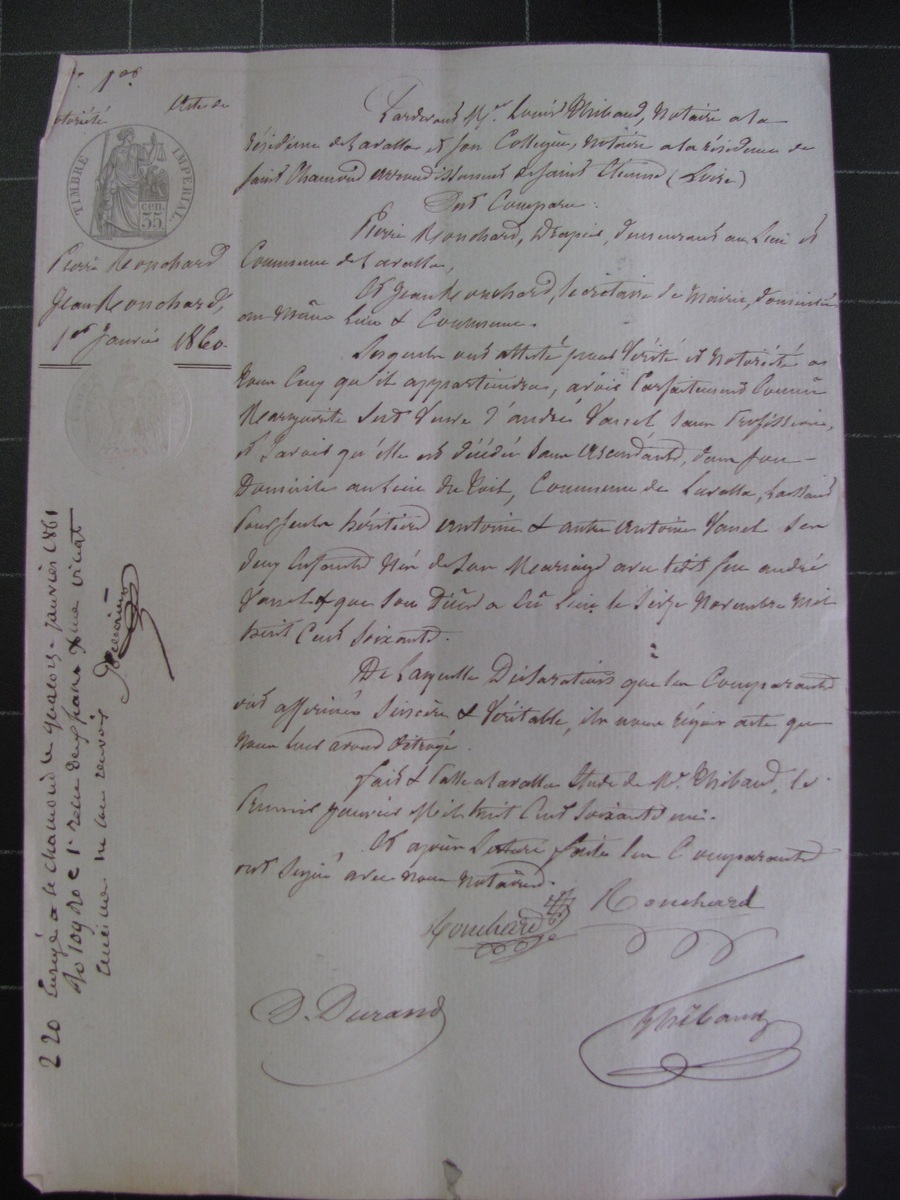 1er
Acte de
notoriété
TIMBRE IMPERIAL
cen. 35
Pierre Ronchard
Jean Ronchard,
1er Janvier 1860
Pardevant Me Louis Thibaud, Notaire a la
résidence de Lavalla et son Collegue, Notaire a la résidence de
Saint Chamond arrondissement de Saint Etienne (Loire)
Ont Comparu:
Pierre Ronchard, demeurant au Lieu et
Commune de Lavalla,
Et Jean Ronchard, secrétaire de Mairie, domicilié
au même Lieu & Commune.
Lesquels ont attesté pour Vérité et Notoriété a
tous Ceux qu'il appartiendra, avoir Parfaitement Connu
Marguerite Veuve d'andré Vassel sans Proféssion,
et Savoir qu'elle est décédé sans ascendants, dans son
Domicile au Lieu du Commune de Lavalla, Laissant
Pour seuls héritiers antoine & autre antoine Vassel ses
deux Enfants Nés de Son Mariage avec ledit feu andré
Vassel & que Son Décès a Eû Lieu le Seize Novembre Mil
huit Cent Soixante.
De Laquelle Déclaration que les Comparants
ont affirmée Sincère & Véritable, ils nous acte que
Nous leur avons Octroyé.
Fait & Passé a Lavalla Etude de Me Thibaud, le
Premier Janvier Mil huit Cent Soixante un.
Et après Lecture faite les Comparants
ont Signé avec nous Notaires.
Ronchard Ronchard
D. Durand Thibaud
220 Enregé a St Chamond le quatorze janvier 1861
fo 109 Ro C 1re reçu deux francs dixme vingt
centimes ne renvoi